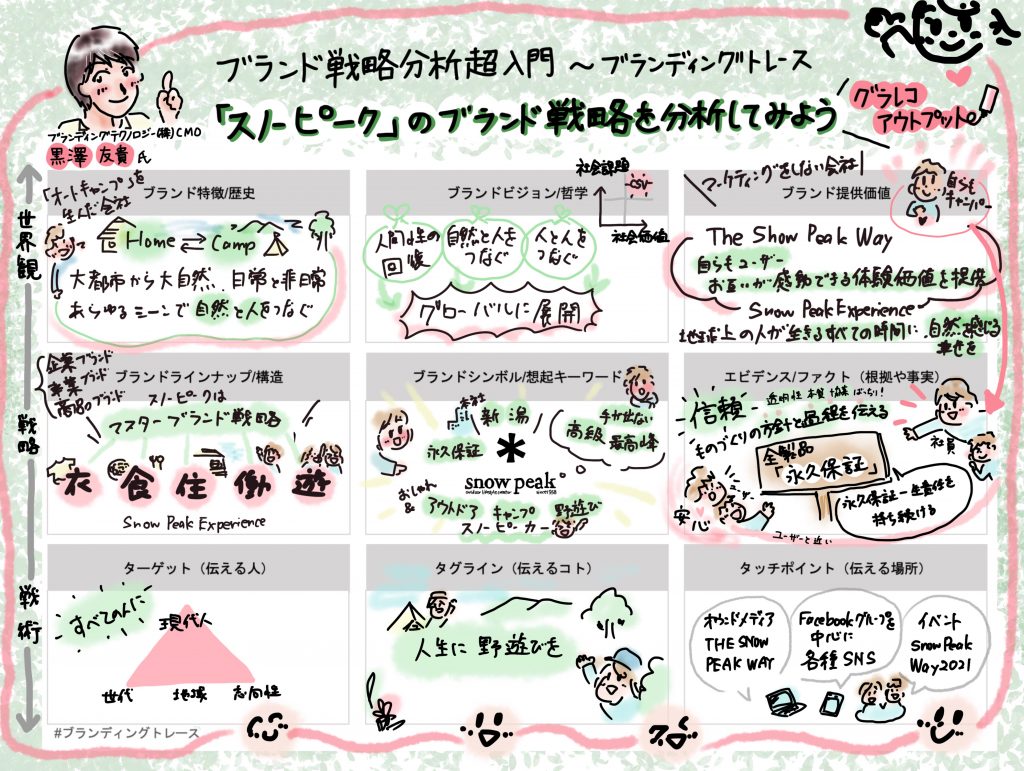 ブランド戦略分析超入門 〜ブランディングトレース
「スノーピーク」のブランド戦略を分析してみよう
グラレコ
アウトプット
ブランディングテクノロジー(株)CMO
黒澤 友貴 氏
世界観
戦略
戦術
ブランド特徴/歴史
「オートキャンプ」を
生んだ会社
Home ⇄ Camp
大都市から大自然、日常と非日常
あらゆるシーンで自然と人をつなぐ
ブランドビジョン/哲学
社会課題
CSV
社会価値
人間性の
回復
自然と人を
つなぐ
人と人を
つなぐ
グローバルに展開
マーケティングをしない会社
ブランド提供価値
自らも
キャンパー
The Snow Peak Way
自らもユーザー
お互いが感動できる体験価値を提供
Snow Peak Experience
地球上の人が生きるすべての時間に自然を感じる
幸せを
ブランドラインナップ/構造
企業ブランド
事業ブランド
商品ブランド
スノーピークは
マスターブランド戦略
衣 食 住 働 遊
Snow Peak Experience
ブランドシンボル/想起キーワード
本社
新潟
永久保証
手が出せない
高級 最高峰
snow peak
outdoor lifestyle creator since 1958
おしゃれ
&
アウトドア キャンプ 野遊び
スノーピーカー
エビデンス/ファクト（根拠や事実）
信頼
透明性 本質 協業 ばっちり!
ものづくりの方針と過程を伝える
全製品
「永久保証」
社員
ユーザー
安心
永久保証=生産性を
持ち続ける
ユーザーと近い
ターゲット（伝える人）
すべての人に
現代人
世代 地域 志向性
タグライン（伝えるコト）
人生に 野遊びを
タッチポイント（伝える場所）
オウンドメディア
THE SNOW
PEAK WAY
Facebookグループを
中心に
各種SNS
イベント
Snow Peak
Way2021
#ブランディングトレース